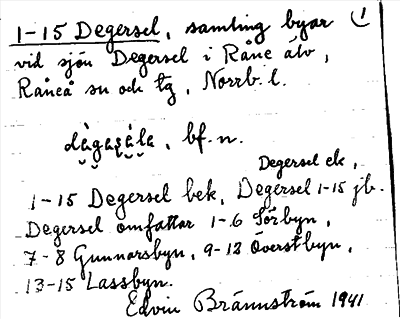 1-15 Degersel, samling byar 1
vid sjön Degersel i Råne älv,
Råneå sn och tg, Norrb. l.
dàgasə̀la, bf. n.
Degersel ek,
1-15 Degersel bek, Degersel 1-15 jb.
Degersel omfattar 1-6 Sörbyn,
7-8 Gunnarsbyn, 9-12 Överstbyn,
13-15 Lassbyn.
Edvin Brännström 1941